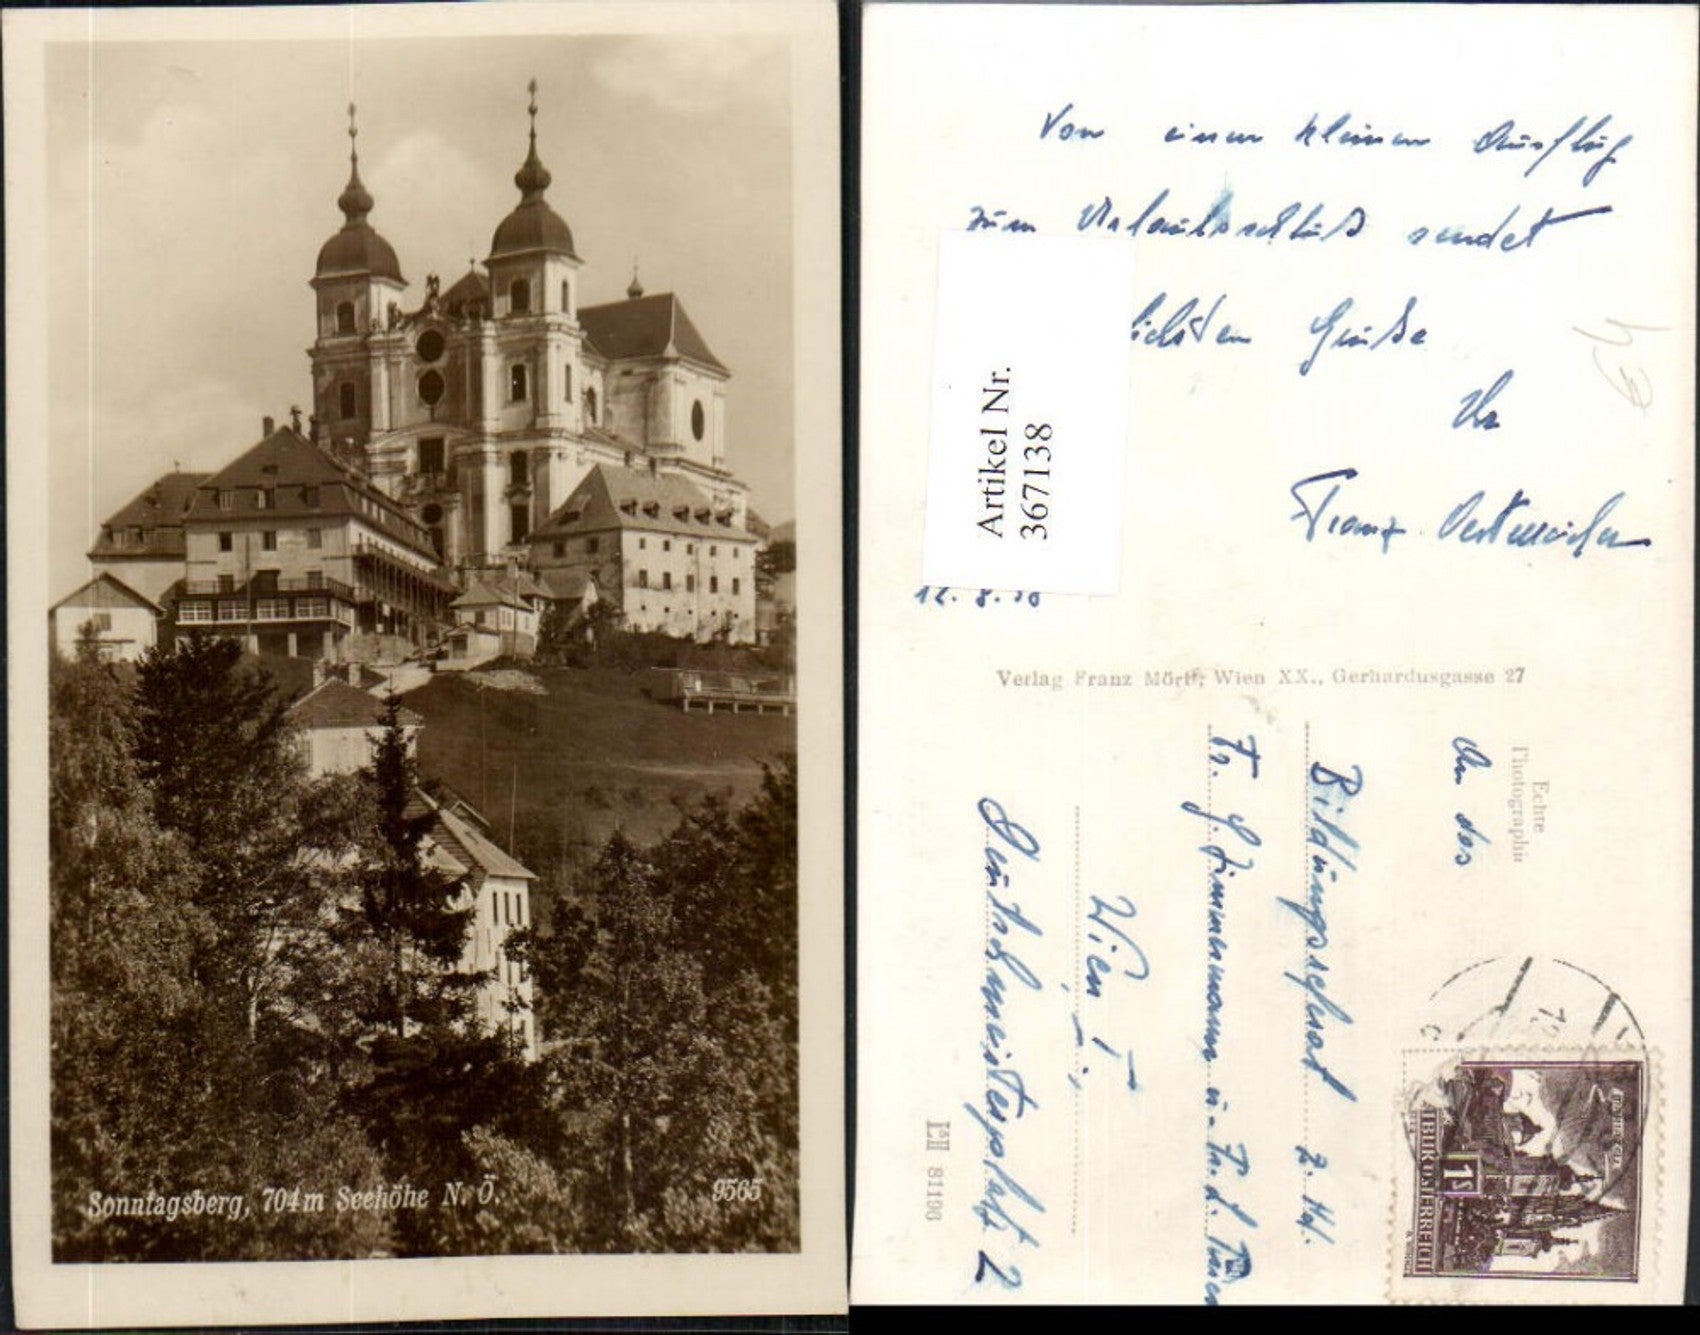 Sonntagsberg, 704 m Seehöhe N. Ö.
9565
Von einem kleinen Ausflug
zum Urlaubsschluß sendet
lichsten Grüße
Ihr
Franz
12. 8.
Artikel Nr.
367138
Verlag Franz Mörtl, Wien XX., Gerhardusgasse 27
Echte
Photographie
An das
Bildungsreferat z. Hd.
Fr. G. Zimmermann u. Fr. L.
Wien I
Deutschmeisterplatz 2
81196
REPUBLIK ÖSTERREICH
1 S